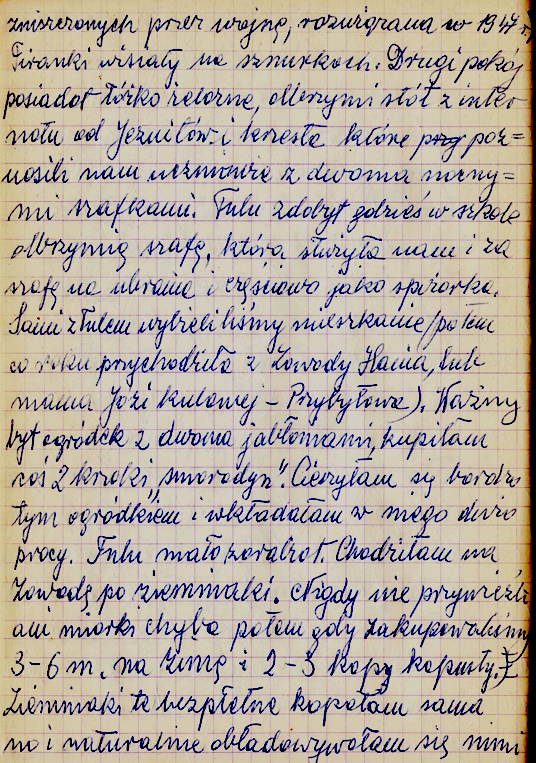 zniszczonych przez wojnę, rozwiązana w 1947 r.
Firanki wisiały na sznurkach. Drugi pokój
posiadał łóżko żelazne, olbrzymi stół z inter
natu od Jezuitów i krzesła które przy poz=
nosili nam uczniowie z dwoma nocny=
mi szafkami. Tulu zdobył gdzieś w szkole
olbrzymią szafę, która służyła nam i za
szafę na ubrania i częściowo jako spiżarka.
Sami z Tulem wybieliliśmy mieszkanie (potem
co roku przychodziła z Zawody Hania, lub
mama Józi Kulowej – Przybyłowa). Ważny
był ogródek z dwoma jabłoniami, kupiłam
coś 2 krzaki "smorodyn". Cieszyłam się bardzo
tym ogródkiem i wkładałam w niego dużo
pracy. Tulu mało zarabiał. Chodziłam na
Zawodę po ziemniaki. Nigdy nie przywieźli
ani miarki chyba potem gdy zakupowaliśmy
3–6 m. na zimę i 2–3 kopy kapusty.
Ziemniaki te bezpłatne kopałam sama
no i naturalnie obładowywałam się nimi